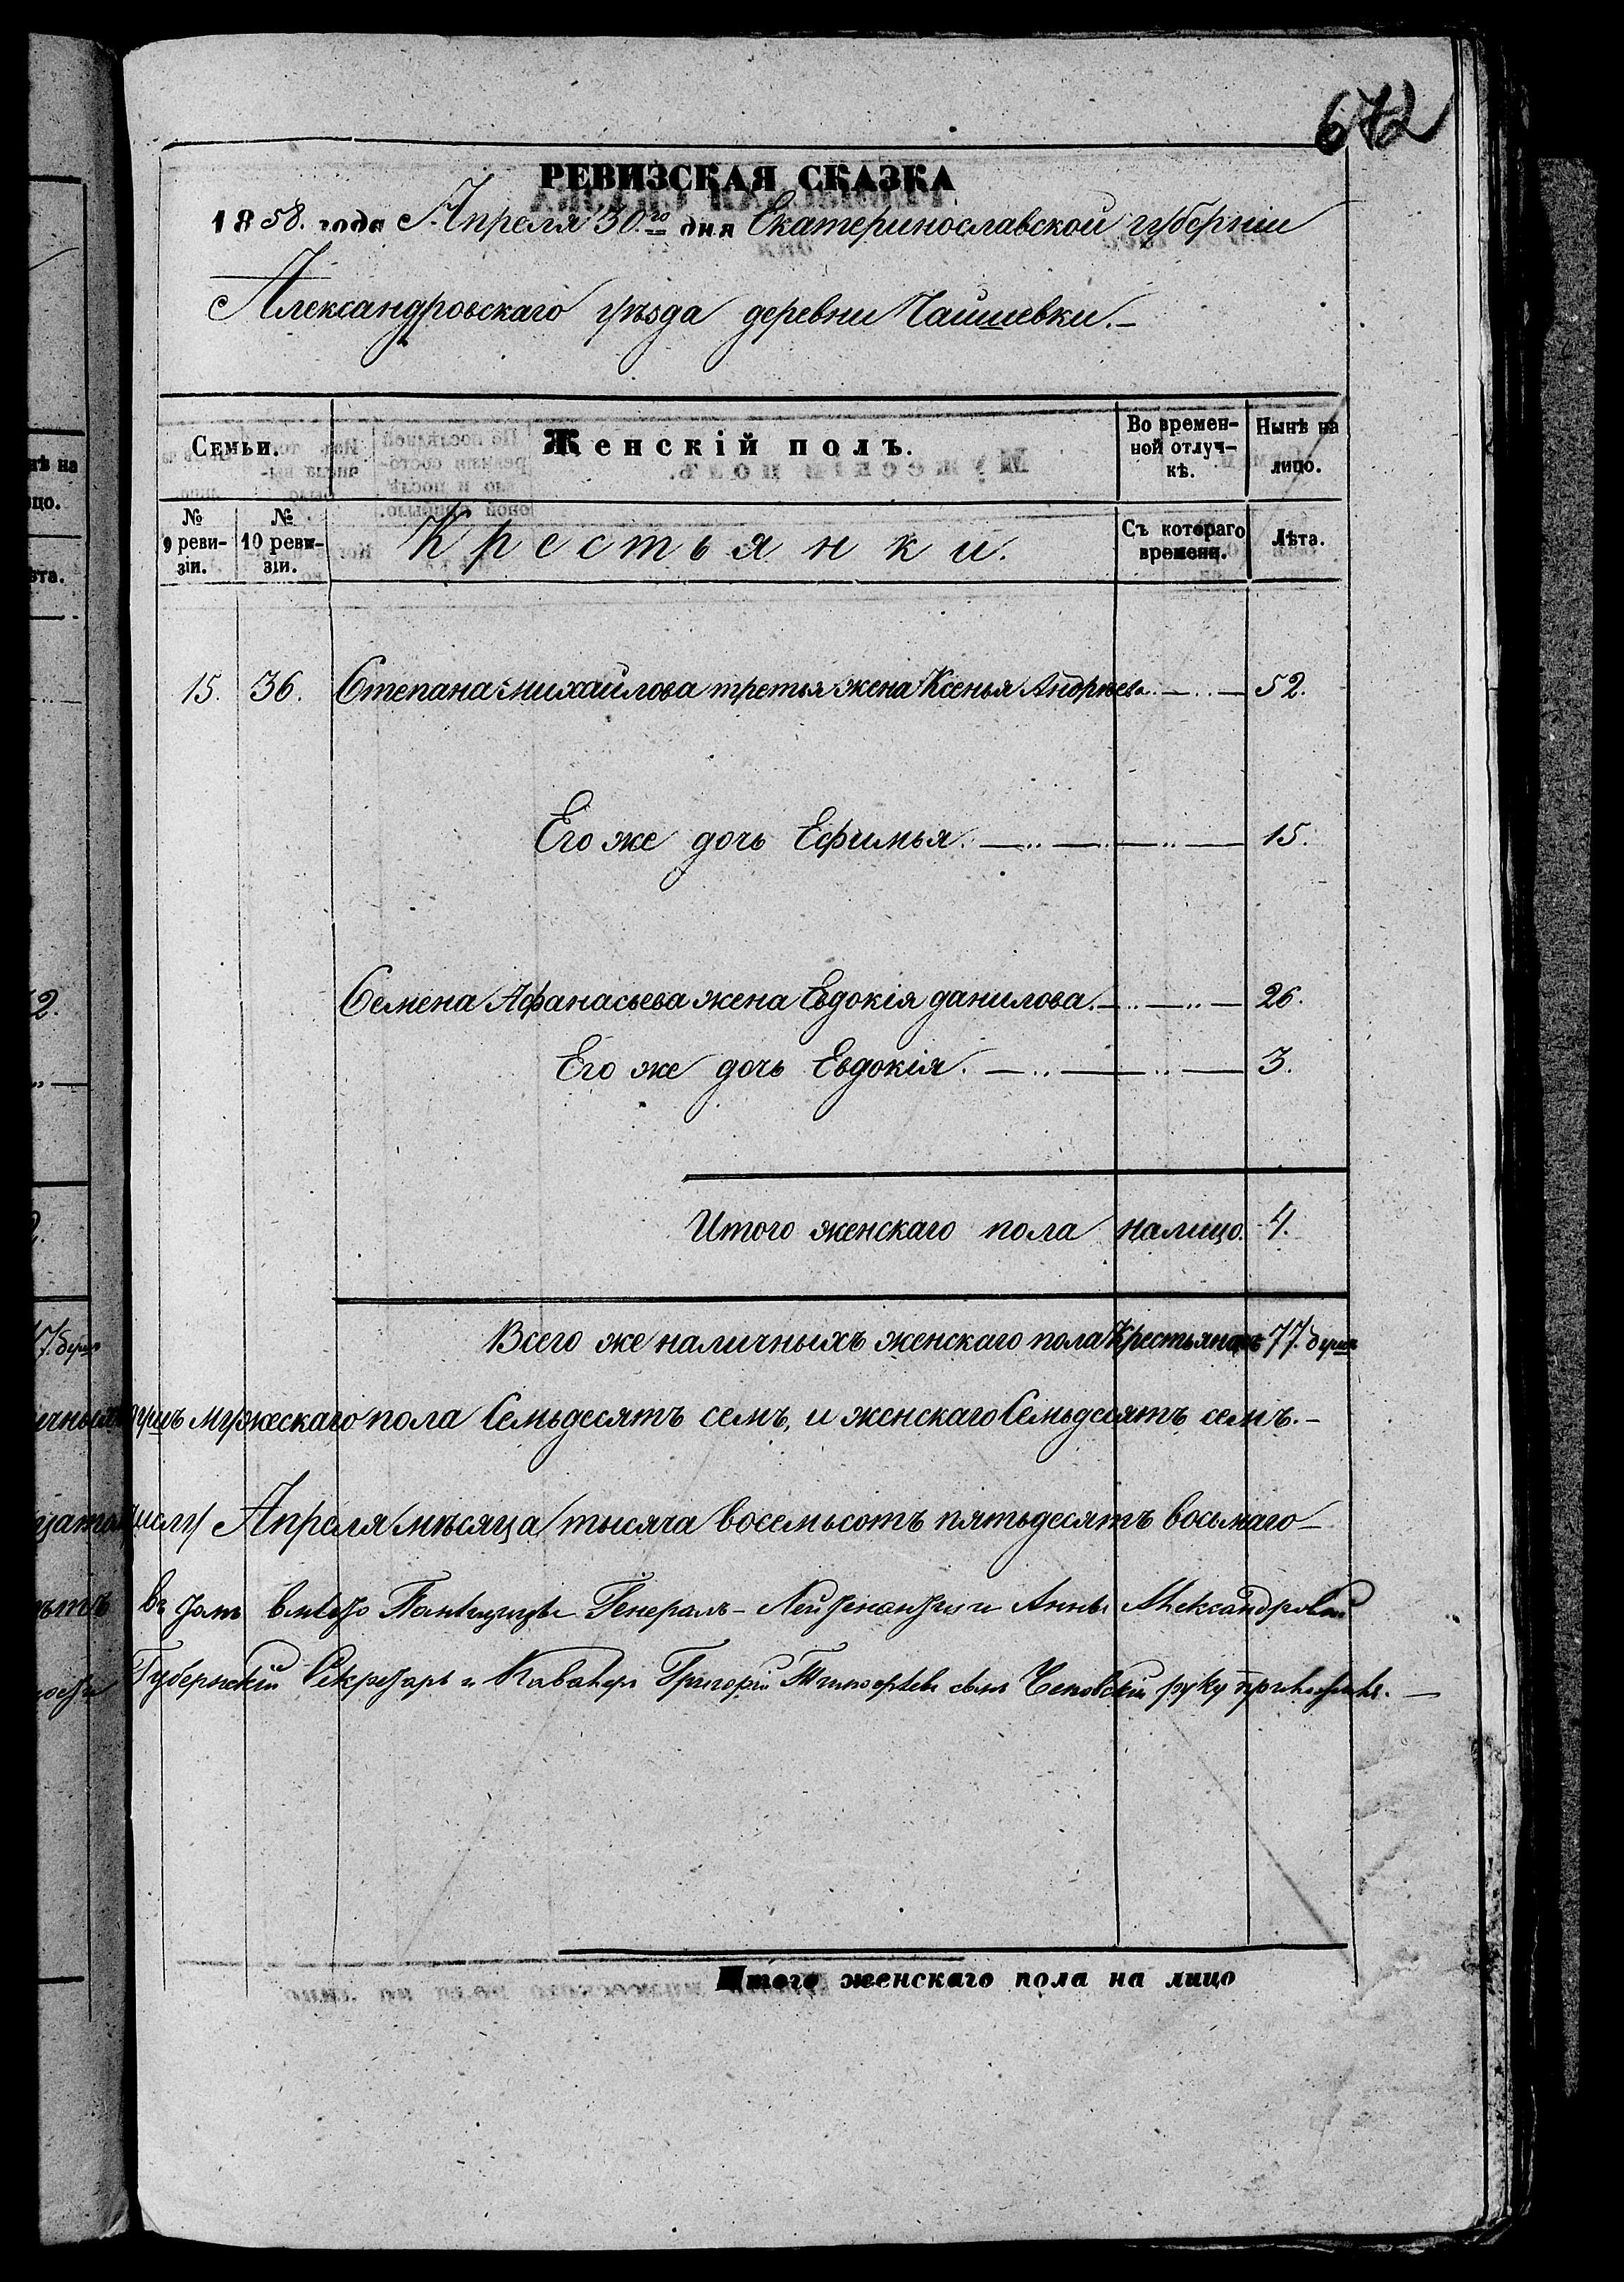 672
РЕВИЗСКАЯ СКАЗКА
1858. года Апреля 30.го дня Екатеринославской губерніи
Александровскаго уѣзда деревни
Семьи.
Женскій полъ.
Во времен-
ной отлуч-
кѣ.
Нынѣ на
лицо.
№
9 реви-
зіи.
№
10 реви-
зіи.
Крестьянки.
Съ котораго
времени.
Лѣта.
15. 36. Степана Михайлова третья жена Ксенья Андреева. 52.
Его же дочь Ефимья. 15.
Семена Афанасьева жена Евдокія данилова. 26.
Его же дочь Евдокія. 3.
Итого женскаго пола налицо. 4.
Всего же наличныхъ женскаго пола Крестьянокъ 77. душъ
душъ мужескаго пола Семьдесятъ семъ, и женскаго Семьдесятъ семъ.
числу Апреля мѣсяца тысяча восемьсотъ пятьдесятъ восьмаго
Генералъ-Лейтенантши Анны Александровой
Губернскій Секретарь и Кавалеръ Григорій сынъ руку приложилъ.
Итого женскаго пола на лицо